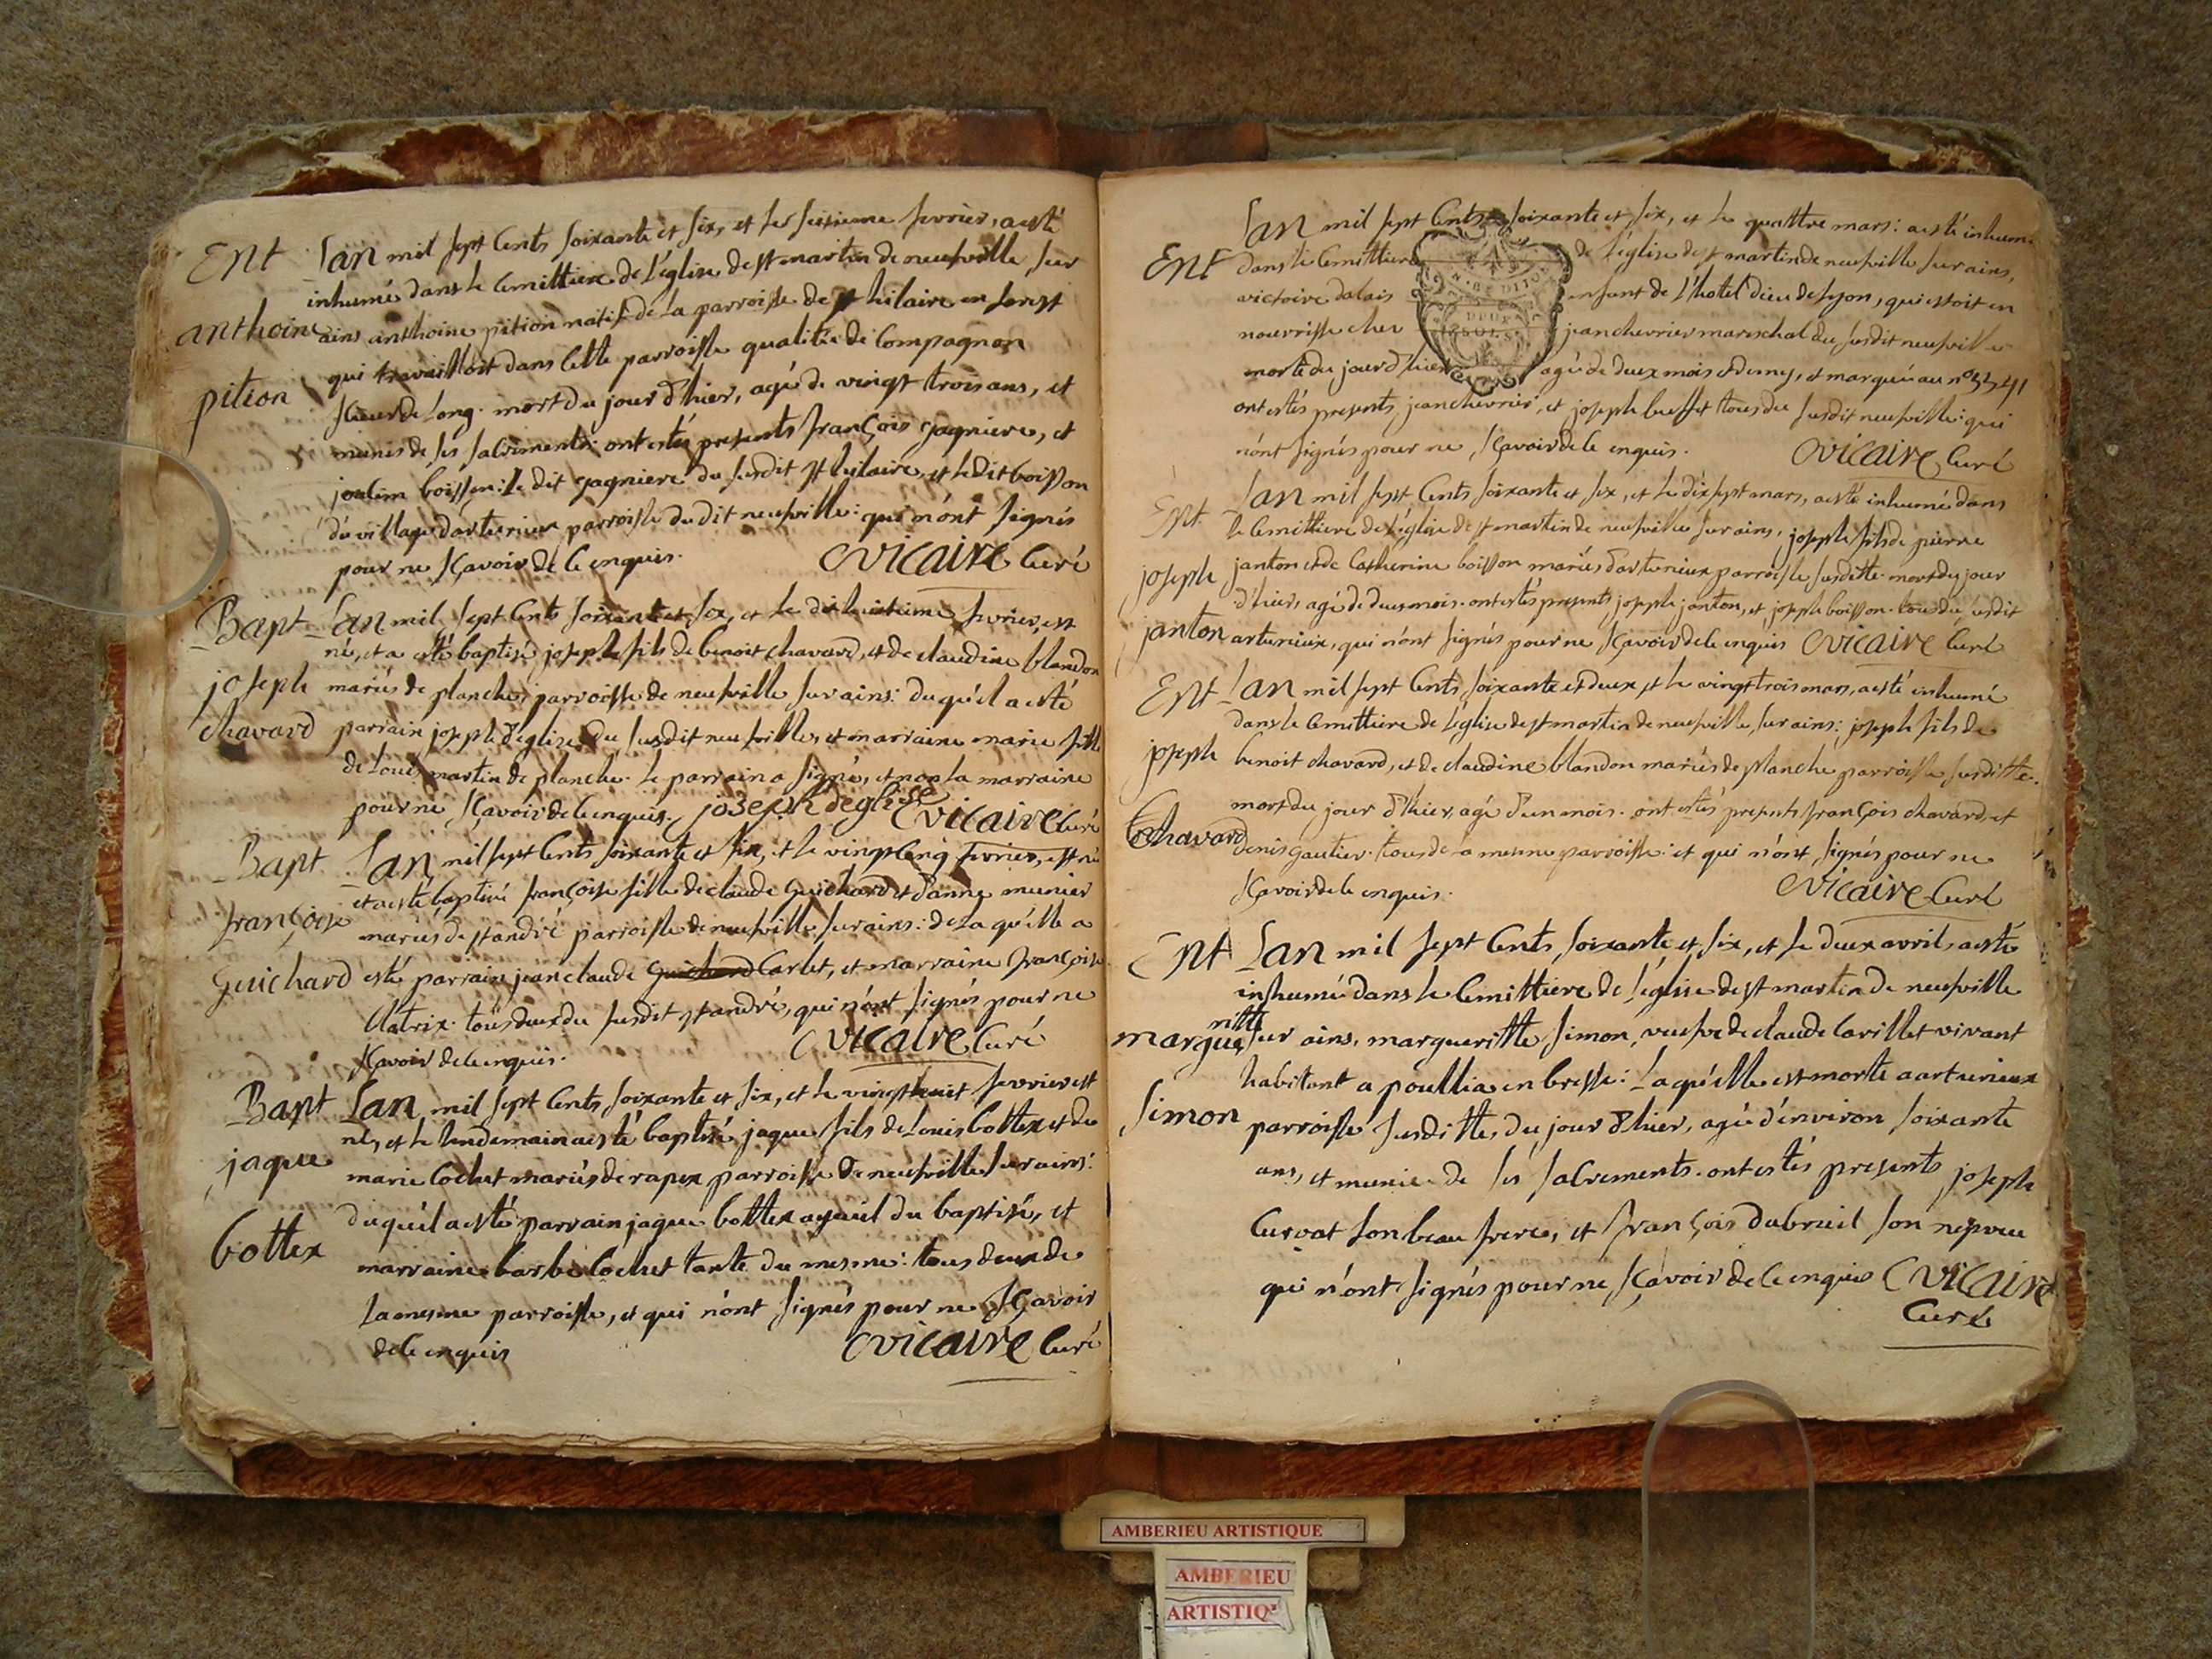 Ent
anthoine
pition
Lan mil sept Cents soixante et six, et le seisieme fevrier, a esté
inhumé dans le Cemittiere de l'église de st martin de neufville sur
ains anthoine pition natif de la parroisse de st hilaire en forest
qui travailloit dans Cette parroisse qualitée de Compagnon
sçieur de Long. mort du jour d'hier, agé de vingt trois ans, et
munis de ses sacrements: ont estés presents françois gagniere, et
boisson: le dit gagniere du susdit st hilaire, et le dit boisson
du village d'arturieux parroisse du dit neufville: qui n'ont signés
pour ne sçavoir de Ce enquis.
vicaire Curé
Bapt
joseph
chavard
Lan mil sept Cents soixante et six, et le dix huitieme fevrier, est
né, et a esté baptisé joseph fils de benoit chavard, et de claudine blandon
mariés de planche, parroisse de neufville sur ains: duquél a esté
parrain joseph déglise du susdit neufville, et marraine marie fille
de Louis martin de planche. Le parrain a signé, et non la marraine
pour ne sçavoir de Ce enquis. joseph deglise vicaire Curé
Bapt
françoise
Guichard
Lan mil sept Cents soixante et six, et le vingt Cinq fevrier, est né
et a esté baptisé françoise fille de claude Guichard et d'anne munier
mariés de st andré parroisse de neufville sur ains: de la qu'élle a
esté parrain jean claude Guichard Carlet, et marraine françoise
Clatrix. tous deux du susdit st andré, qui n'ont signés pour ne
sçavoir de Ce enquis.
vicaire Curé
Bapt
jaque
bottex
Lan mil sept Cents soixante et six, et le vingt huit fevrier est
né, et le lendemain a esté baptisé jaque fils de Louis bottex et de
marie Cochet mariés de rapex parroisse de neufville sur ains:
duquél a esté parrain jaque bottex ayeuil du baptisé, et
marraine barbe Cochet tante du mesme: tous deux de
la mesme parroisse, et qui n'ont signés pour ne sçavoir
de Ce enquis
vicaire Curé
Ent
Lan mil sept Cents soixante et six, et le quattre mars: a esté inhumé
dans le Cemittiere de l'église de st martin de neufville sur ains,
victoire dalais enfant de l'hotel dieu de Lyon, qui estoit en
nourrisse chez jean chevrier mareschal du susdit neufville
morte du jour d'hier agé de deux mois et demy, et marquée au n°
ont estés presents jean chevrier, et joseph buffet tous du susdit neufville: qui
n'ont signés pour ne sçavoir de Ce enquis.
vicaire Curé
Ent
joseph
janton
Lan mil sept Cents soixante et six, et le dix sept mars, a esté inhumé dans
le Cemittiere de l'église de st martin de neufville sur ains, joseph fils de pierre
janton et de Catherine boisson mariés d'arturieux parroisse susditte. mort du jour
d'hier, agé de deux mois. ont estés presents joseph janton, et joseph boisson. tous du susdit
arturieux, qui n'ont signés pour ne sçavoir de Ce enquis vicaire Curé
Ent
joseph
chavard
Lan mil sept Cents soixante et deux, et le vingt trois mars, a esté inhumé
dans le Cemittiere de l'église de st martin de neufville sur ains: joseph fils de
benoit chavard, et de claudine blandon mariés de planche parroisse susditte.
mort du jour d'hier, agé d'un mois. ont estés presents françois chavard, et
denis gautier. tous de la mesme parroisse: et qui n'ont signés pour ne
sçavoir de Ce enquis.
vicaire Curé
Ent
margueritte
simon
Lan mil sept Cents soixante et six, et le deux avril, a esté
inhumé dans le Cemittiere de l'église de st martin de neufville
sur ains, margueritte simon, veufve de claude Cavillet vivant
habitant a poullia en bresse: laqu'élle est morte a arturieux
parroisse susditte, du jour d'hier, agé d'environ soixante
ans, et munie de ses sacrements. ont estés presents joseph
Curvat son beau frere, et françois dubreuil son nepveu
qui n'ont signés pour ne sçavoir de Ce enquis vicaire
Curé
AMBERIEU ARTISTIQUE
AMBERIEU
ARTISTIQ